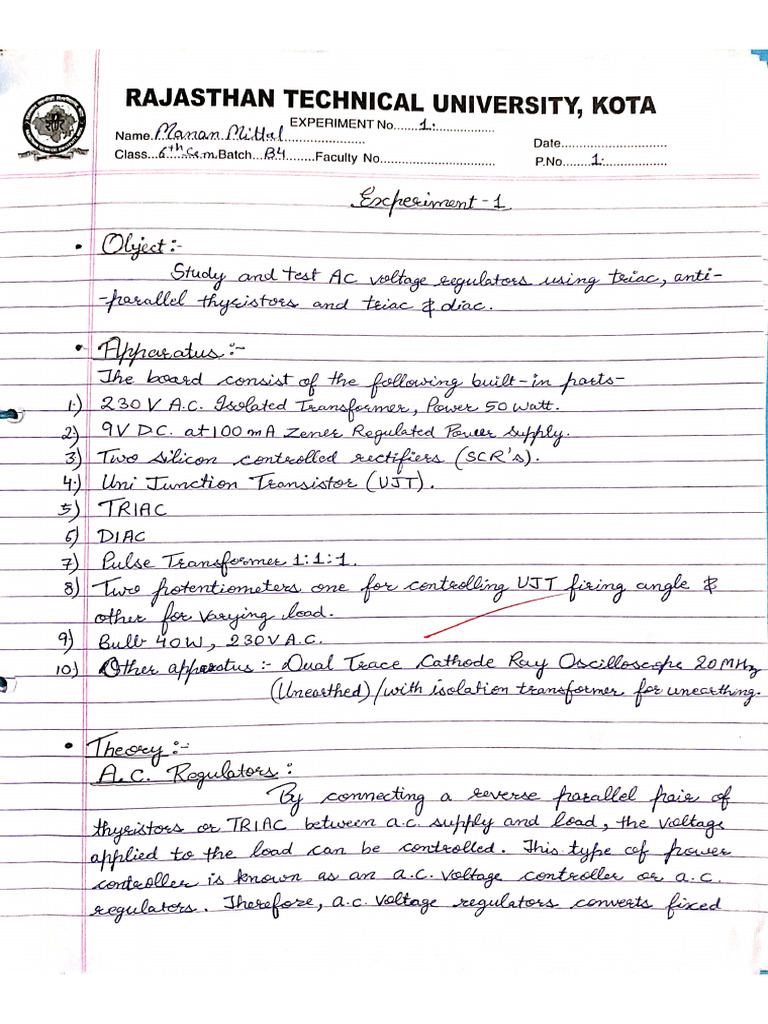 RAJASTHAN TECHNICAL UNIVERSITY, KOTA
EXPERIMENT No.......1:...............
Name. Manan Mittal.................... Date............................
Class...6th Sem.Batch...B4........Faculty No.............................. P.No........1:.................
Experiment - 1
• Object :-
Study and test AC voltage regulators using triac, anti-
-parallel thyristors and triac & diac.
• Apparatus :-
The board consist of the following built-in parts-
1.) 230 V A.C. Isolated Transformer, Power 50 watt.
2.) 9V DC. at 100 mA Zener Regulated Power Supply.
3.) Two silicon controlled rectifiers (SCR's).
4.) Uni Junction Transistor (UJT).
5.) TRIAC
6.) DIAC
7.) Pulse Transformer 1:1:1.
8.) Two potentiometers one for controlling UJT firing angle &
other for varying load.
9.) Bulb 40W, 230V A.C.
10.) Other apparatus :- Dual Trace Cathode Ray Oscilloscope 20 MHz
(Unearthed)/with isolation transformer for unearthing.
• Theory :-
A.C. Regulators :
By connecting a reverse parallel pair of
thyristors or TRIAC between a.c. supply and load, the voltage
applied to the load can be controlled. This type of power
controller is known as an a.c. voltage controller or a.c.
regulators. Therefore, a.c. voltage regulators converts fixed